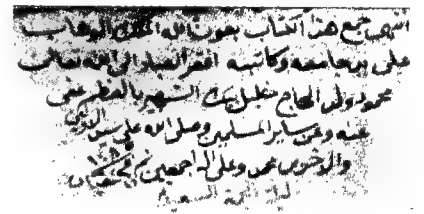 انتهى جمع هذا الكتاب بعون الله الملك الوهاب
على يد جامعه وكاتبه افقر العباد الى الله تعالى
محمود ولد الحاج خليل الشهير بالعظم عفى
عنه وعن ساير المسلمين وصلى الله على سيد
والاخرين محمد وعلى اله اجمعين
ليلة الجمعة